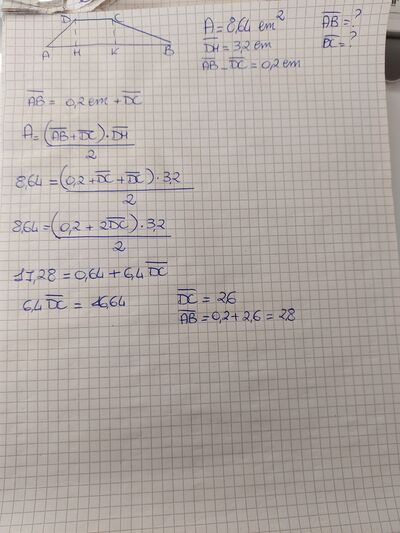 D C
A H K B
A = 8,64 cm²
D̅H̅ = 3,2 cm
A̅B̅ - D̅C̅ = 0,2 cm
A̅B̅ = ?
D̅C̅ = ?
A̅B̅ = 0,2 cm + D̅C̅
A = (A̅B̅ + D̅C̅) · D̅H̅
2
8,64 = (0,2 + D̅C̅ + D̅C̅) · 3,2
2
8,64 = (0,2 + 2D̅C̅) · 3,2
2
17,28 = 0,64 + 6,4 D̅C̅
6,4 D̅C̅ = 16,64
D̅C̅ = 2,6
A̅B̅ = 0,2 + 2,6 = 2,8